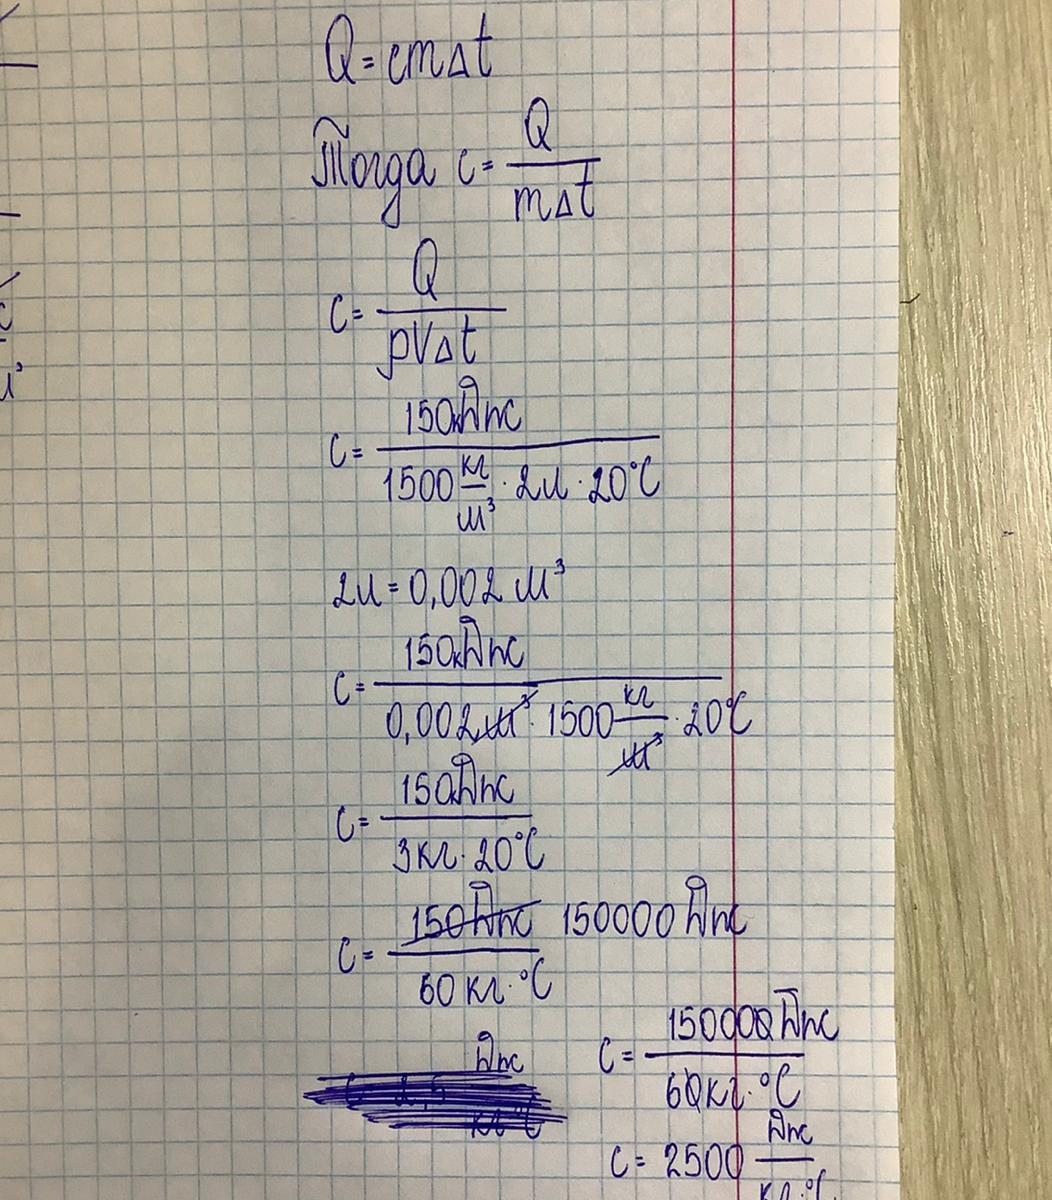 Q = cm∆t
Тогда c = Q / m∆t
c = Q / ρV∆t
c = 150кДж / 1500 кг/м³ · 2л · 20°C
2л = 0,002 м³
c = 150кДж / 0,002 м³ · 1500 кг/м³ · 20°C
c = 150кДж / 3кг · 20°C
c = 150Дж / 60 кг · °C 150000 Дж
c = 150000 Дж / 60кг · °C
Дж
кг°C
c = 2500 Дж / кг · °C